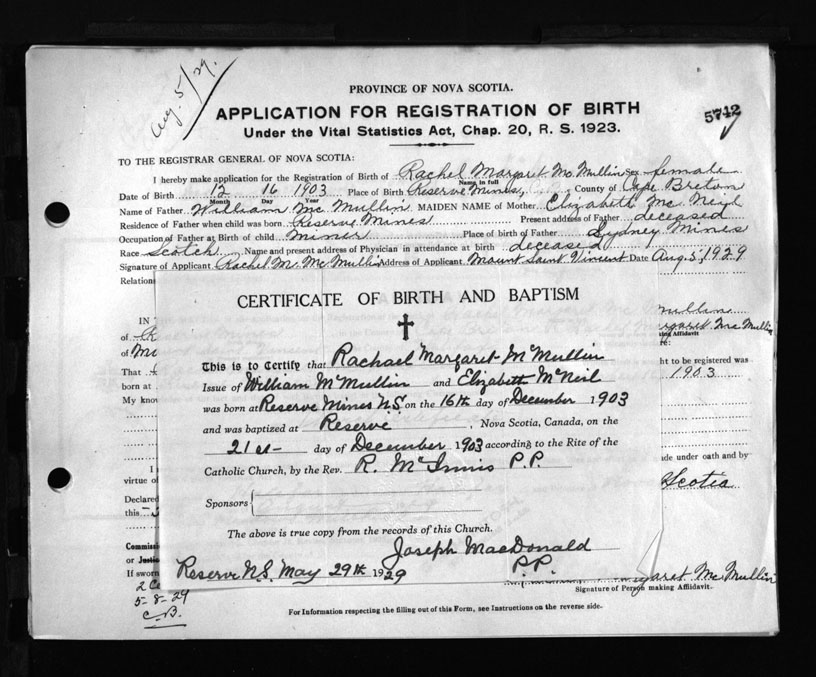 Aug. 5/29.
PROVINCE OF NOVA SCOTIA.
APPLICATION FOR REGISTRATION OF BIRTH
5742
Under the Vital Statistics Act, Chap. 20, R. S. 1923.
TO THE REGISTRAR GENERAL OF NOVA SCOTIA:
I hereby make application for the Registration of Birth of Rachel Margaret Mc Mullin Sex female
Name in full
Date of Birth 12 16 1903 Place of Birth Reserve Mines, County of Cape Breton
Month Day Year
Name of Father William Mc Mullin MAIDEN NAME of Mother Elizabeth Mc Neil
Residence of Father when child was born Reserve Mines Present address of Father deceased
Occupation of Father at Birth of child miner Place of birth of Father Sydney Mines
Race Scotch Name and present address of Physician in attendance at birth deceased
Signature of Applicant Rachel M. Mc Mullin Address of Applicant Mount Saint Vincent Date Aug. 5, 1929
Relation
CERTIFICATE OF BIRTH AND BAPTISM
This is to Certify that Rachael Margaret McMullin
Issue of William McMullin and Elizabeth McNeil
was born at Reserve Mines N.S. on the 16th day of December 1903
and was baptized at Reserve, Nova Scotia, Canada, on the
21st day of December 1903 according to the Rite of the
Catholic Church, by the Rev. R. McInnis P.P.
Sponsors
The above is true copy from the records of this Church.
Joseph MacDonald
P.P.
Reserve N.S. May 29th 1929
IN
of
of
That
born at
My know
I
virtue of
Declared
this
Commissi
or Justic
If sworn
2 Ce
5-8-29
C.B.
Mullin
Margaret Mc Mullin
ing Affidavit
re:
ht to be registered was
1903
de under oath and by
Scotia
Margaret Mc Mullin
Signature of Person making Affidavit.
For Information respecting the filling out of this Form, see Instructions on the reverse side.